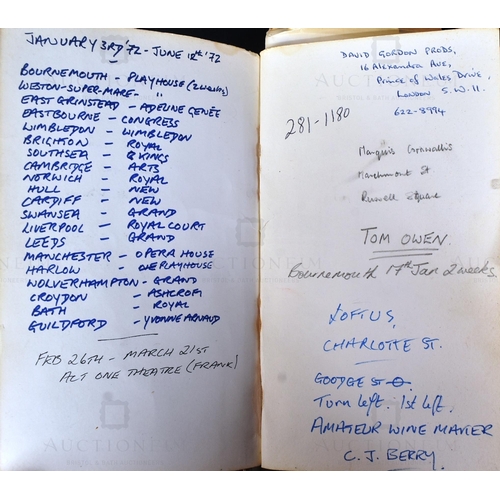 JANUARY 3RD '72 - JUNE 18th '72
BOURNEMOUTH - PLAYHOUSE (2 weeks)
WESTON-SUPER-MARE - "
EAST GRINSTEAD - ADELINE GENÉE
EASTBOURNE - CONGRESS
WIMBLEDON - WIMBLEDON
BRIGHTON - ROYAL
SOUTHSEA - KINGS
CAMBRIDGE - ARTS
NORWICH - ROYAL
HULL - NEW
CARDIFF - NEW
SWANSEA - GRAND
LIVERPOOL - ROYAL COURT
LEEDS - GRAND
MANCHESTER - OPERA HOUSE
HARLOW - PLAYHOUSE
WOLVERHAMPTON - GRAND
CROYDON - ASHCROFT
BATH - ROYAL
GUILDFORD - YVONNE ARNAUD
FEB 26TH - MARCH 21ST
ACT ONE THEATRE (FRANK)
DAVID GORDON PRODS,
16 Alexandra Ave,
Prince of Wales Drive,
LONDON S.W.11.
622-8994
281-1180
Marquis Cornwallis
Marchmont St
Russell Square
TOM OWEN.
Bournemouth 17th Jan 2 weeks.
LOFTUS,
CHARLOTTE ST.
GOODGE ST
Turn left. 1st left.
AMATEUR WINE MAKER
C. J. BERRY.
AUCTIONEUM
AUCTIONEUM